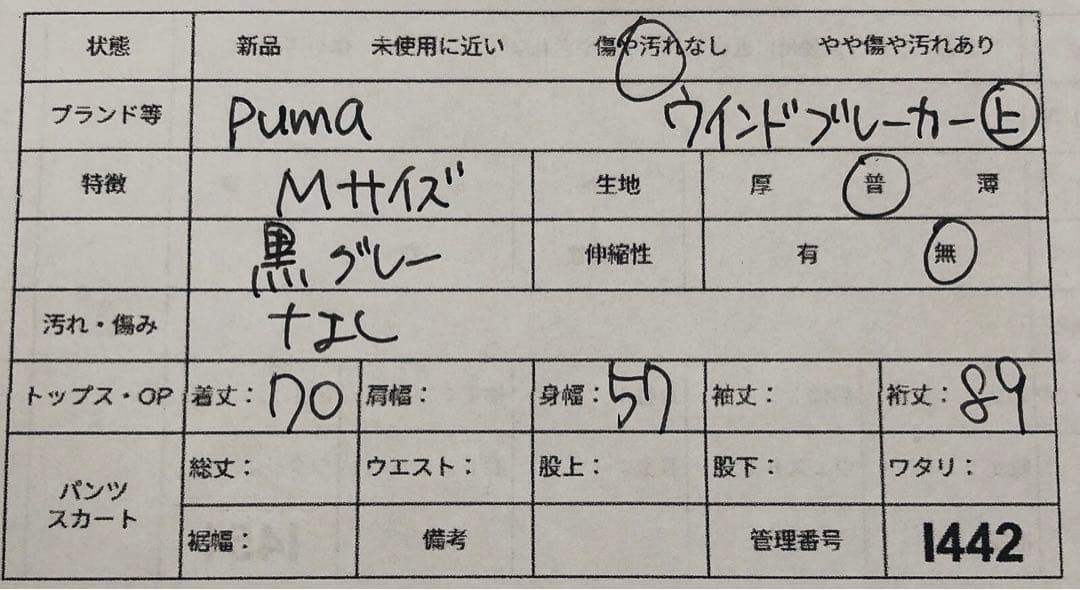 状態 新品 未使用に近い 傷や汚れなし やや傷や汚れあり
ブランド等 puma ウインドブレーカー 上
特徴 Mサイズ 生地 厚 普 薄
黒 グレー 伸縮性 有 無
汚れ・傷み なし
トップス・OP 着丈: 70 肩幅: 身幅: 57 袖丈: 裄丈: 89
パンツ スカート 総丈: ウエスト: 股上: 股下: ワタリ:
裾幅: 備考 管理番号 I442